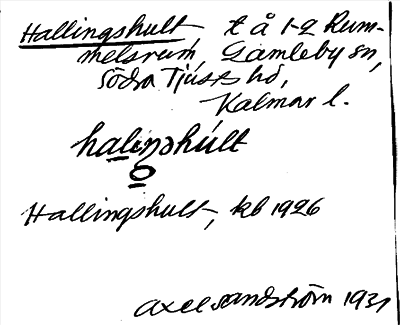 Hallingshult, t å 1-2 Rum-
melsrum, Gamleby sn,
Södra Tjusts hd,
Kalmar l.
haliŋshúlt
o
Hallingshult, kb 1926
Axel Sandström 1931